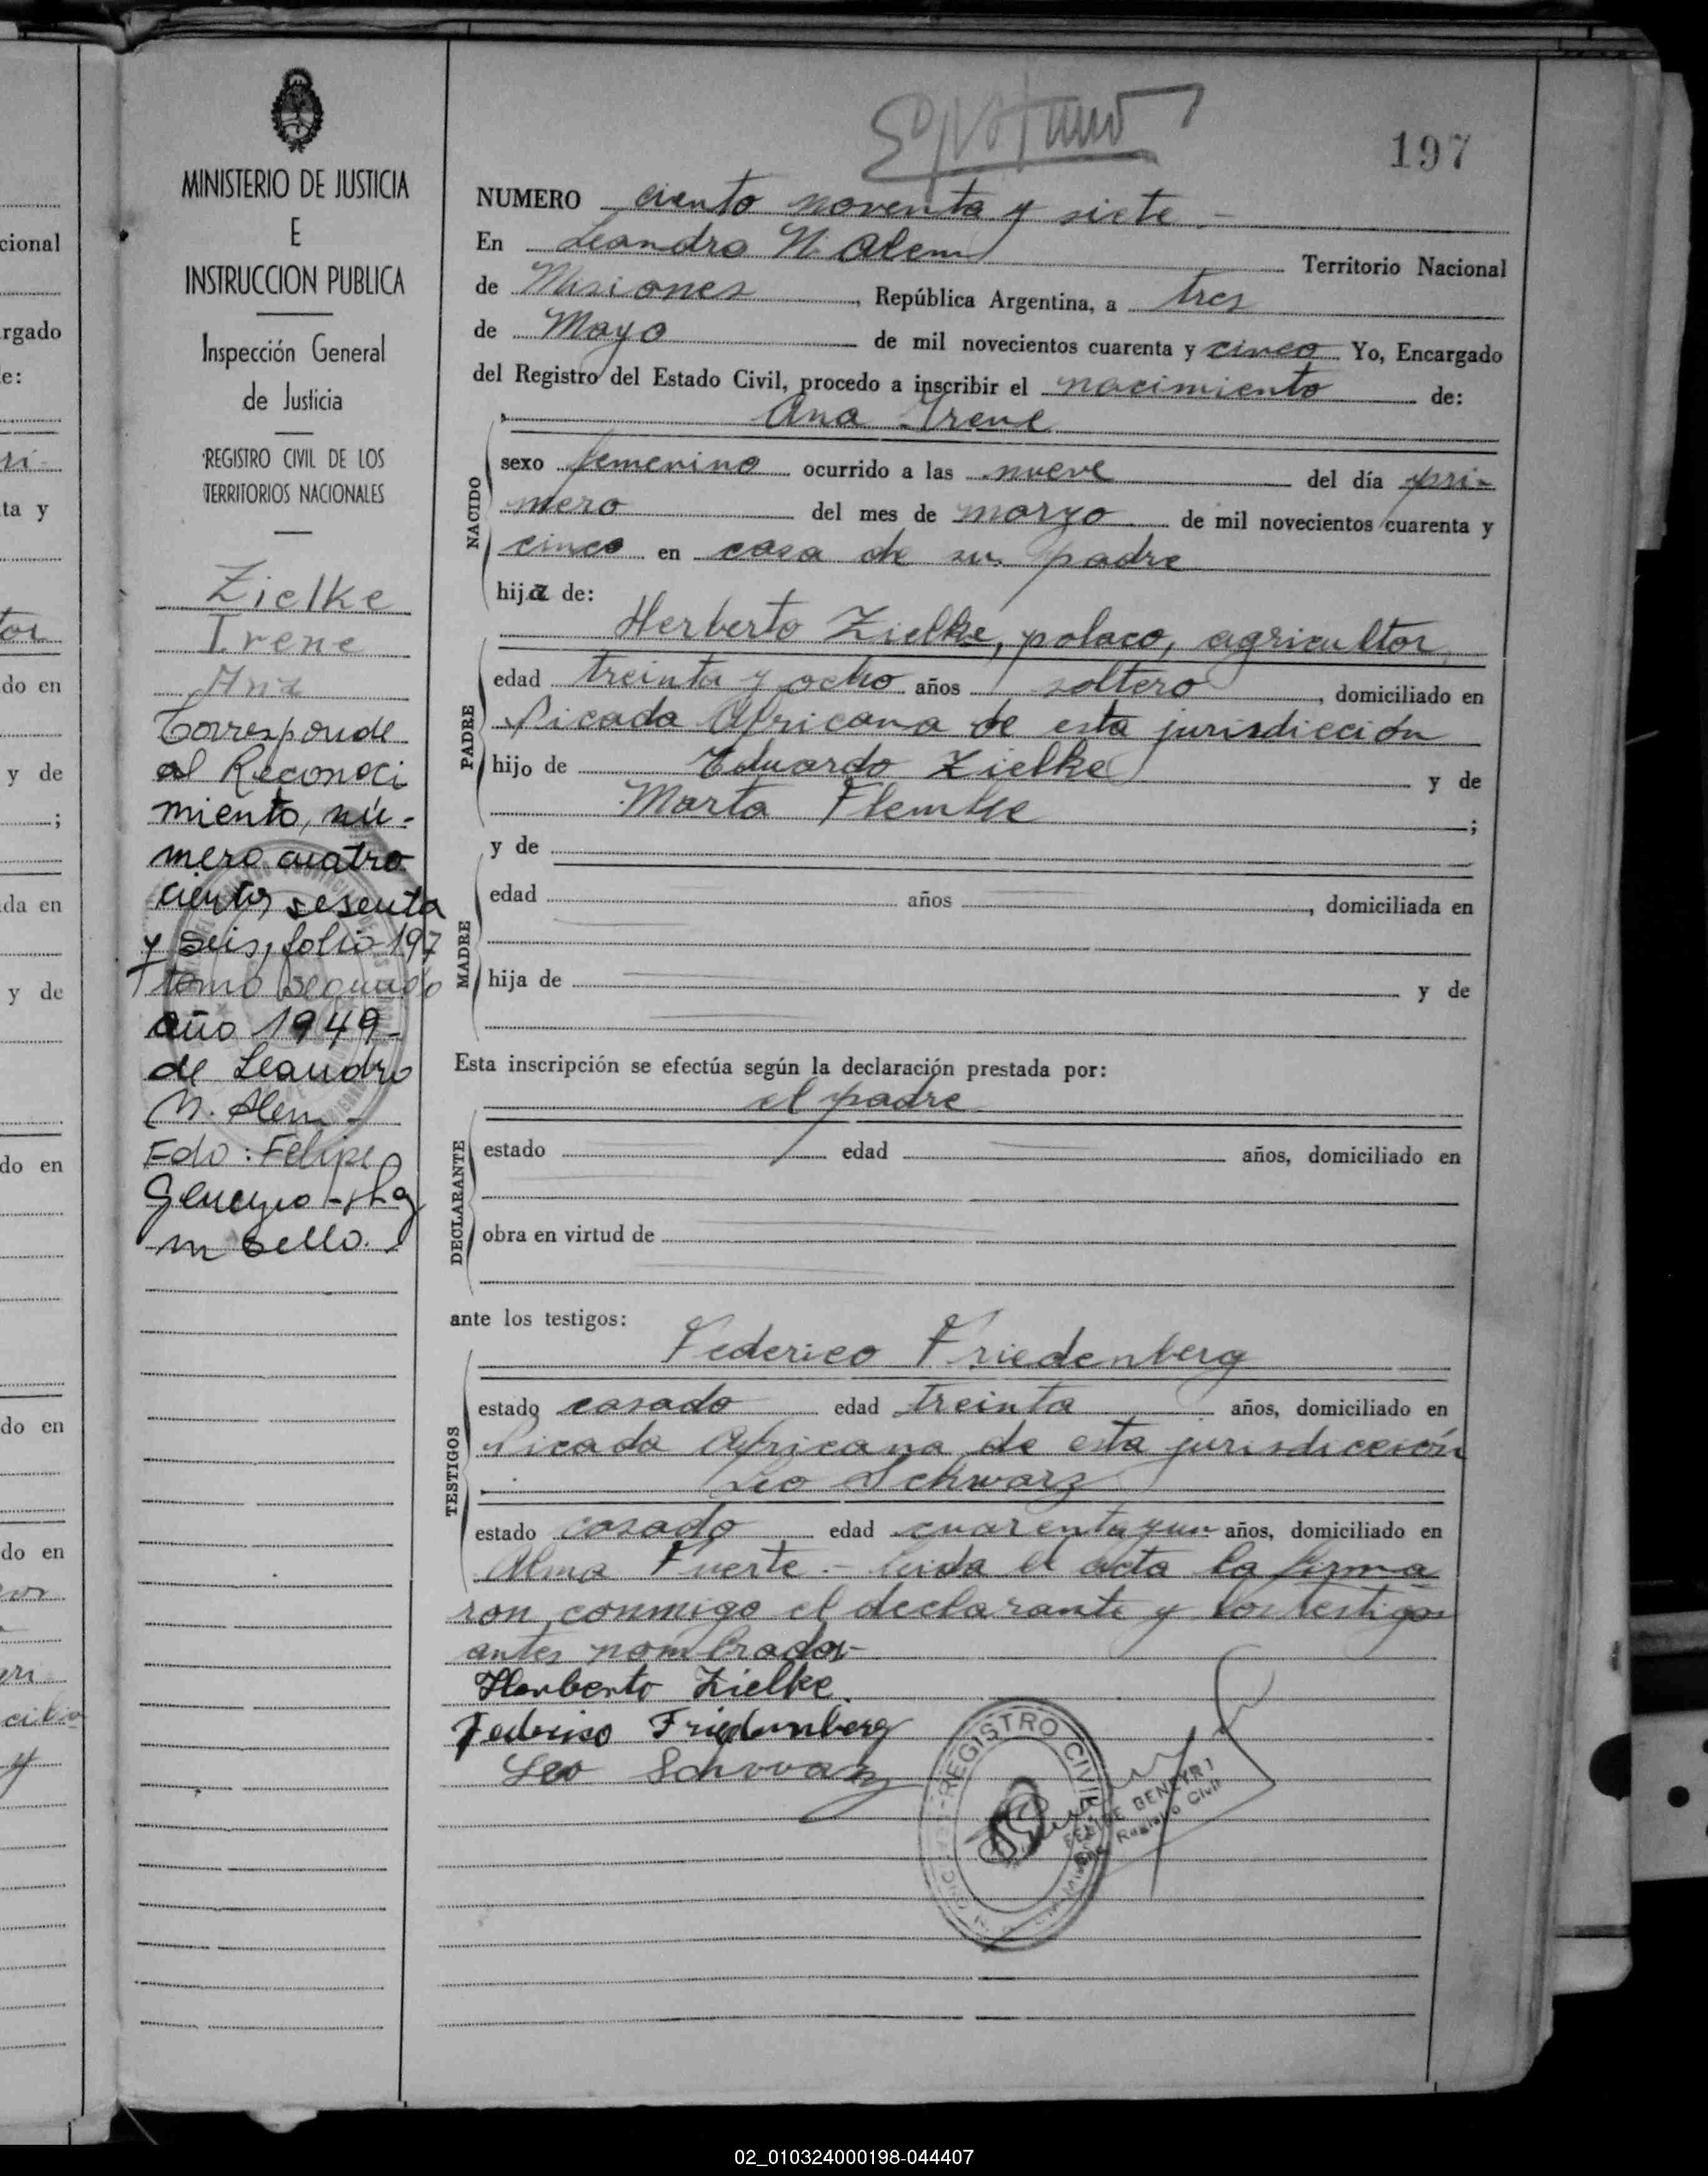 197
MINISTERIO DE JUSTICIA
E
INSTRUCCION PUBLICA
Inspección General
de Justicia
REGISTRO CIVIL DE LOS
TERRITORIOS NACIONALES
Zielke
Irene
Ana
Corresponde
al Reconoci
miento, nú-
mero cuatro
cientos sesenta
y seis, folio 197
tomo segundo
año 1949-
de Leandro
N. Alem -
Edo: Felipe
sello.
NUMERO ciento noventa y siete -
En Leandro N. Alem Territorio Nacional
de Misiones, República Argentina, a tres
de Mayo de mil novecientos cuarenta y cinco Yo, Encargado
del Registro del Estado Civil, procedo a inscribir el nacimiento de:
Ana Irene
NACIDO
sexo femenino ocurrido a las nueve del día pri-
mero del mes de marzo de mil novecientos cuarenta y
cinco en casa de su padre
hija de:
Herberto Zielke, polaco, agricultor,
PADRE
edad treinta y ocho años soltero, domiciliado en
Picada Africana de esta jurisdicción
hijo de Eduardo Zielke y de
Marta ;
y de
MADRE
edad años , domiciliada en
hija de y de
Esta inscripción se efectúa según la declaración prestada por:
el padre
DECLARANTE
estado edad años, domiciliado en
obra en virtud de
ante los testigos:
Federico Friedenberg
TESTIGOS
estado casado edad treinta años, domiciliado en
Picada Africana de esta jurisdicción
Leo Schwarz
estado casado edad cuarenta y un años, domiciliado en
Alma Fuerte.- leida el acta la firma
ron conmigo el declarante y los testigos
antes nombrados-
Herberto Zielke.
Federico Friedenberg
Leo Schwarz
REGISTRO CIVIL
FELIPE
Registro Civil
cional
rgado
e:
ta y
do en
y de
;
da en
y de
do en
do en
do en
02_010324000198-044407